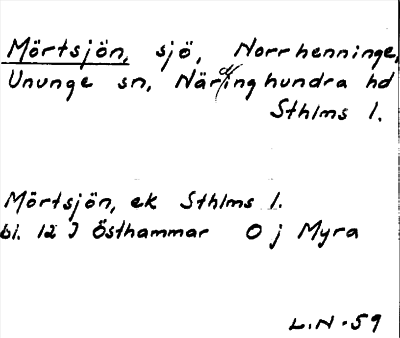 Mörtsjön, sjö, Norrhenninge,
Ununge sn, Närdinghundra hd
Sthlms l.
Mörtsjön, ek Sthlms l.
bl. 12 J Östhammar O j Myra
L.N-59